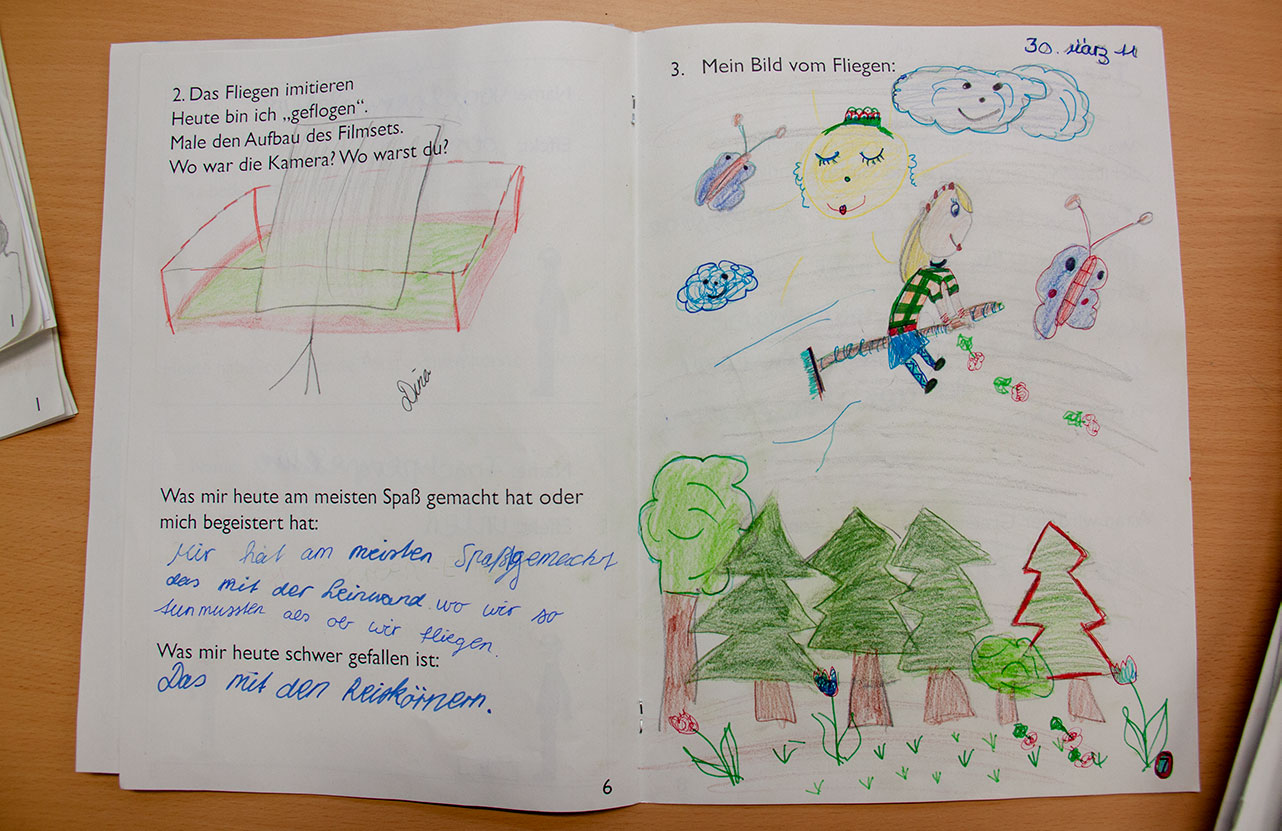 2. Das Fliegen imitieren
Heute bin ich „geflogen“.
Male den Aufbau des Filmsets.
Wo war die Kamera? Wo warst du?
Was mir heute am meisten Spaß gemacht hat oder
mich begeistert hat:
Mir hat am meisten Spaß gemacht
das mit der Leinwand wo wir so
tun mussten als ob wir fliegen.
Was mir heute schwer gefallen ist:
Das mit den Reiskörnern.
6
30. März 11
3. Mein Bild vom Fliegen:
7
1
1